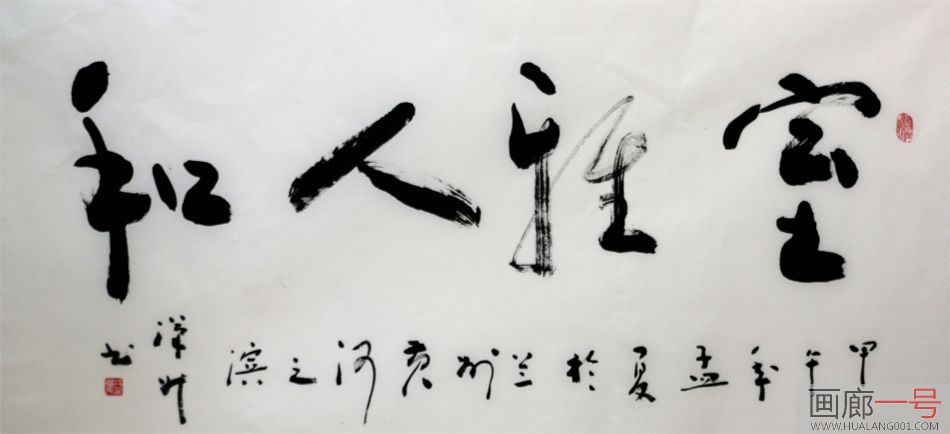 室雅人和
甲午年孟夏於兰州黄河之滨
书
画廊一号
WWW.HUALANG001.COM